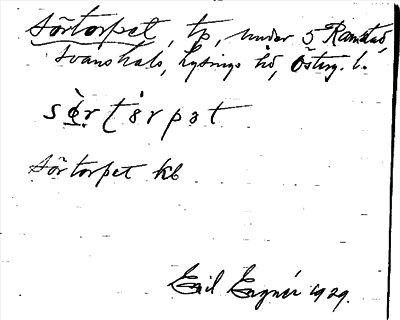 Sörtorpet, tp, under 5 Ramstad,
Svanshals, Lysings hd, Österg. l.
sö̀r ţår pət
Sörtorpet kb
Emil Eegnér 1929.